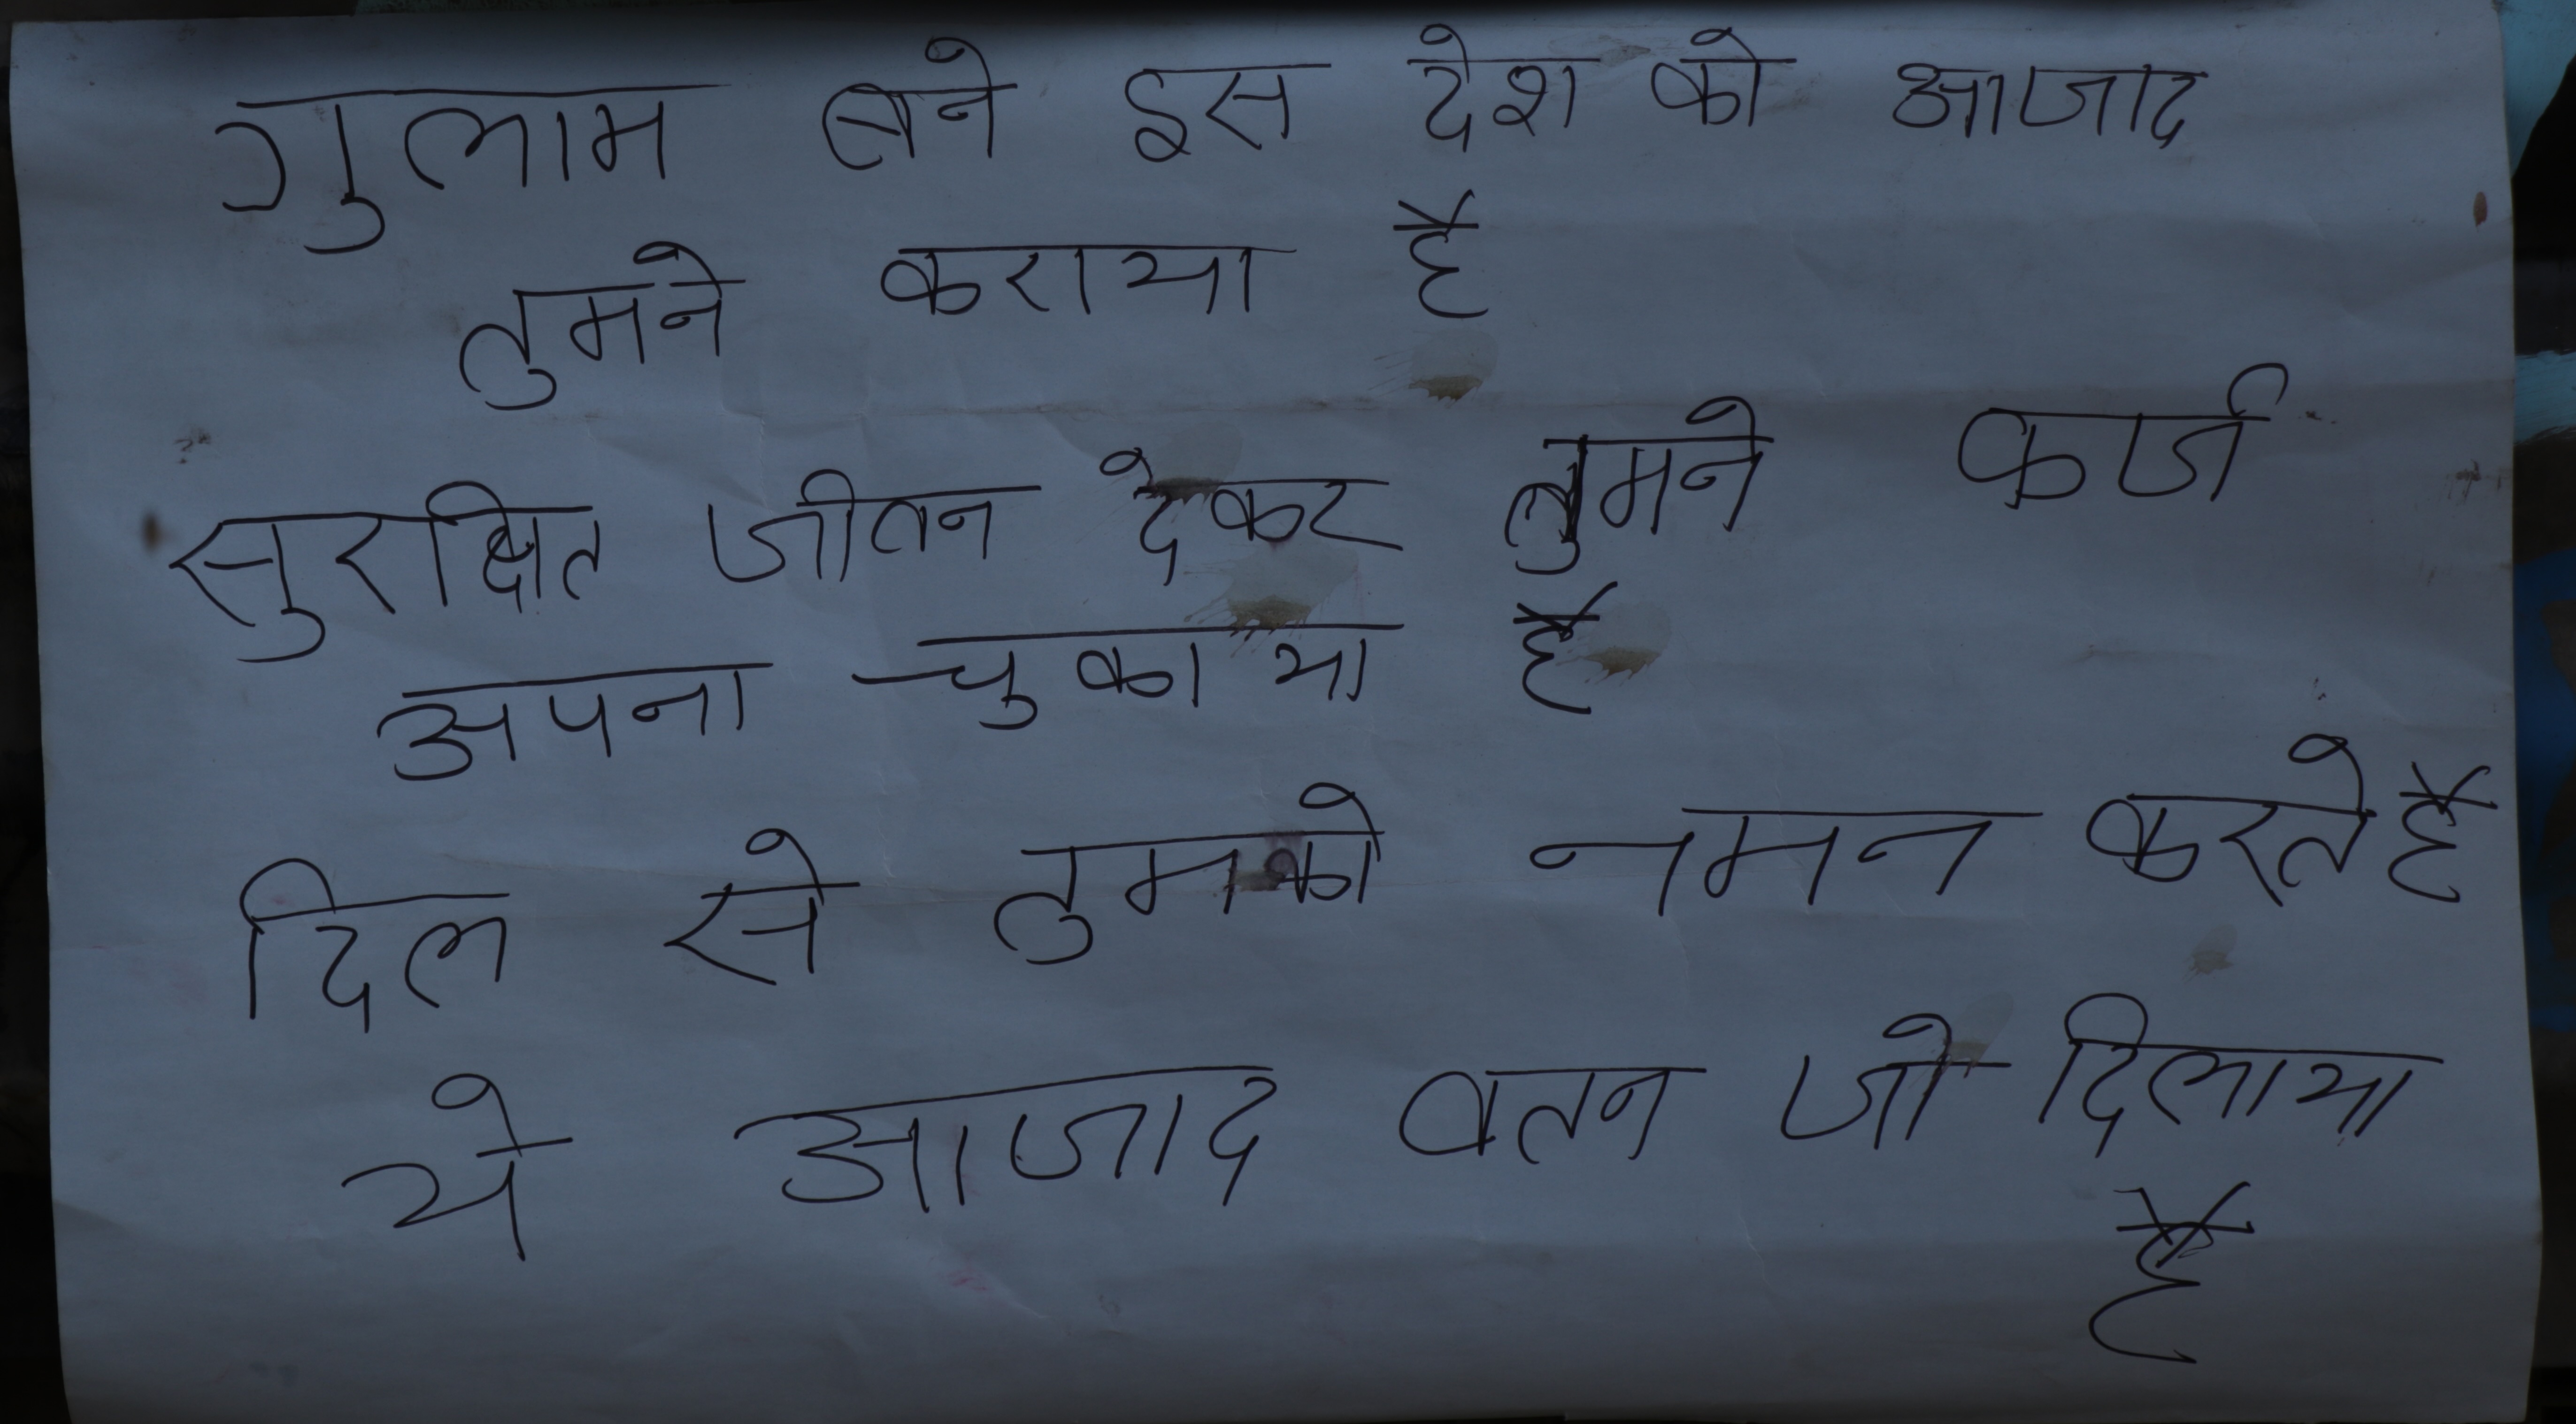 गुलाम बने इस देश को आजाद
तुमने कराया है
सुरक्षित जीवन देकर तुमने कर्ज
अपना चुकाया है
दिल से तुमको नमन करते है
ये आजाद वतन जो दिलाया
है